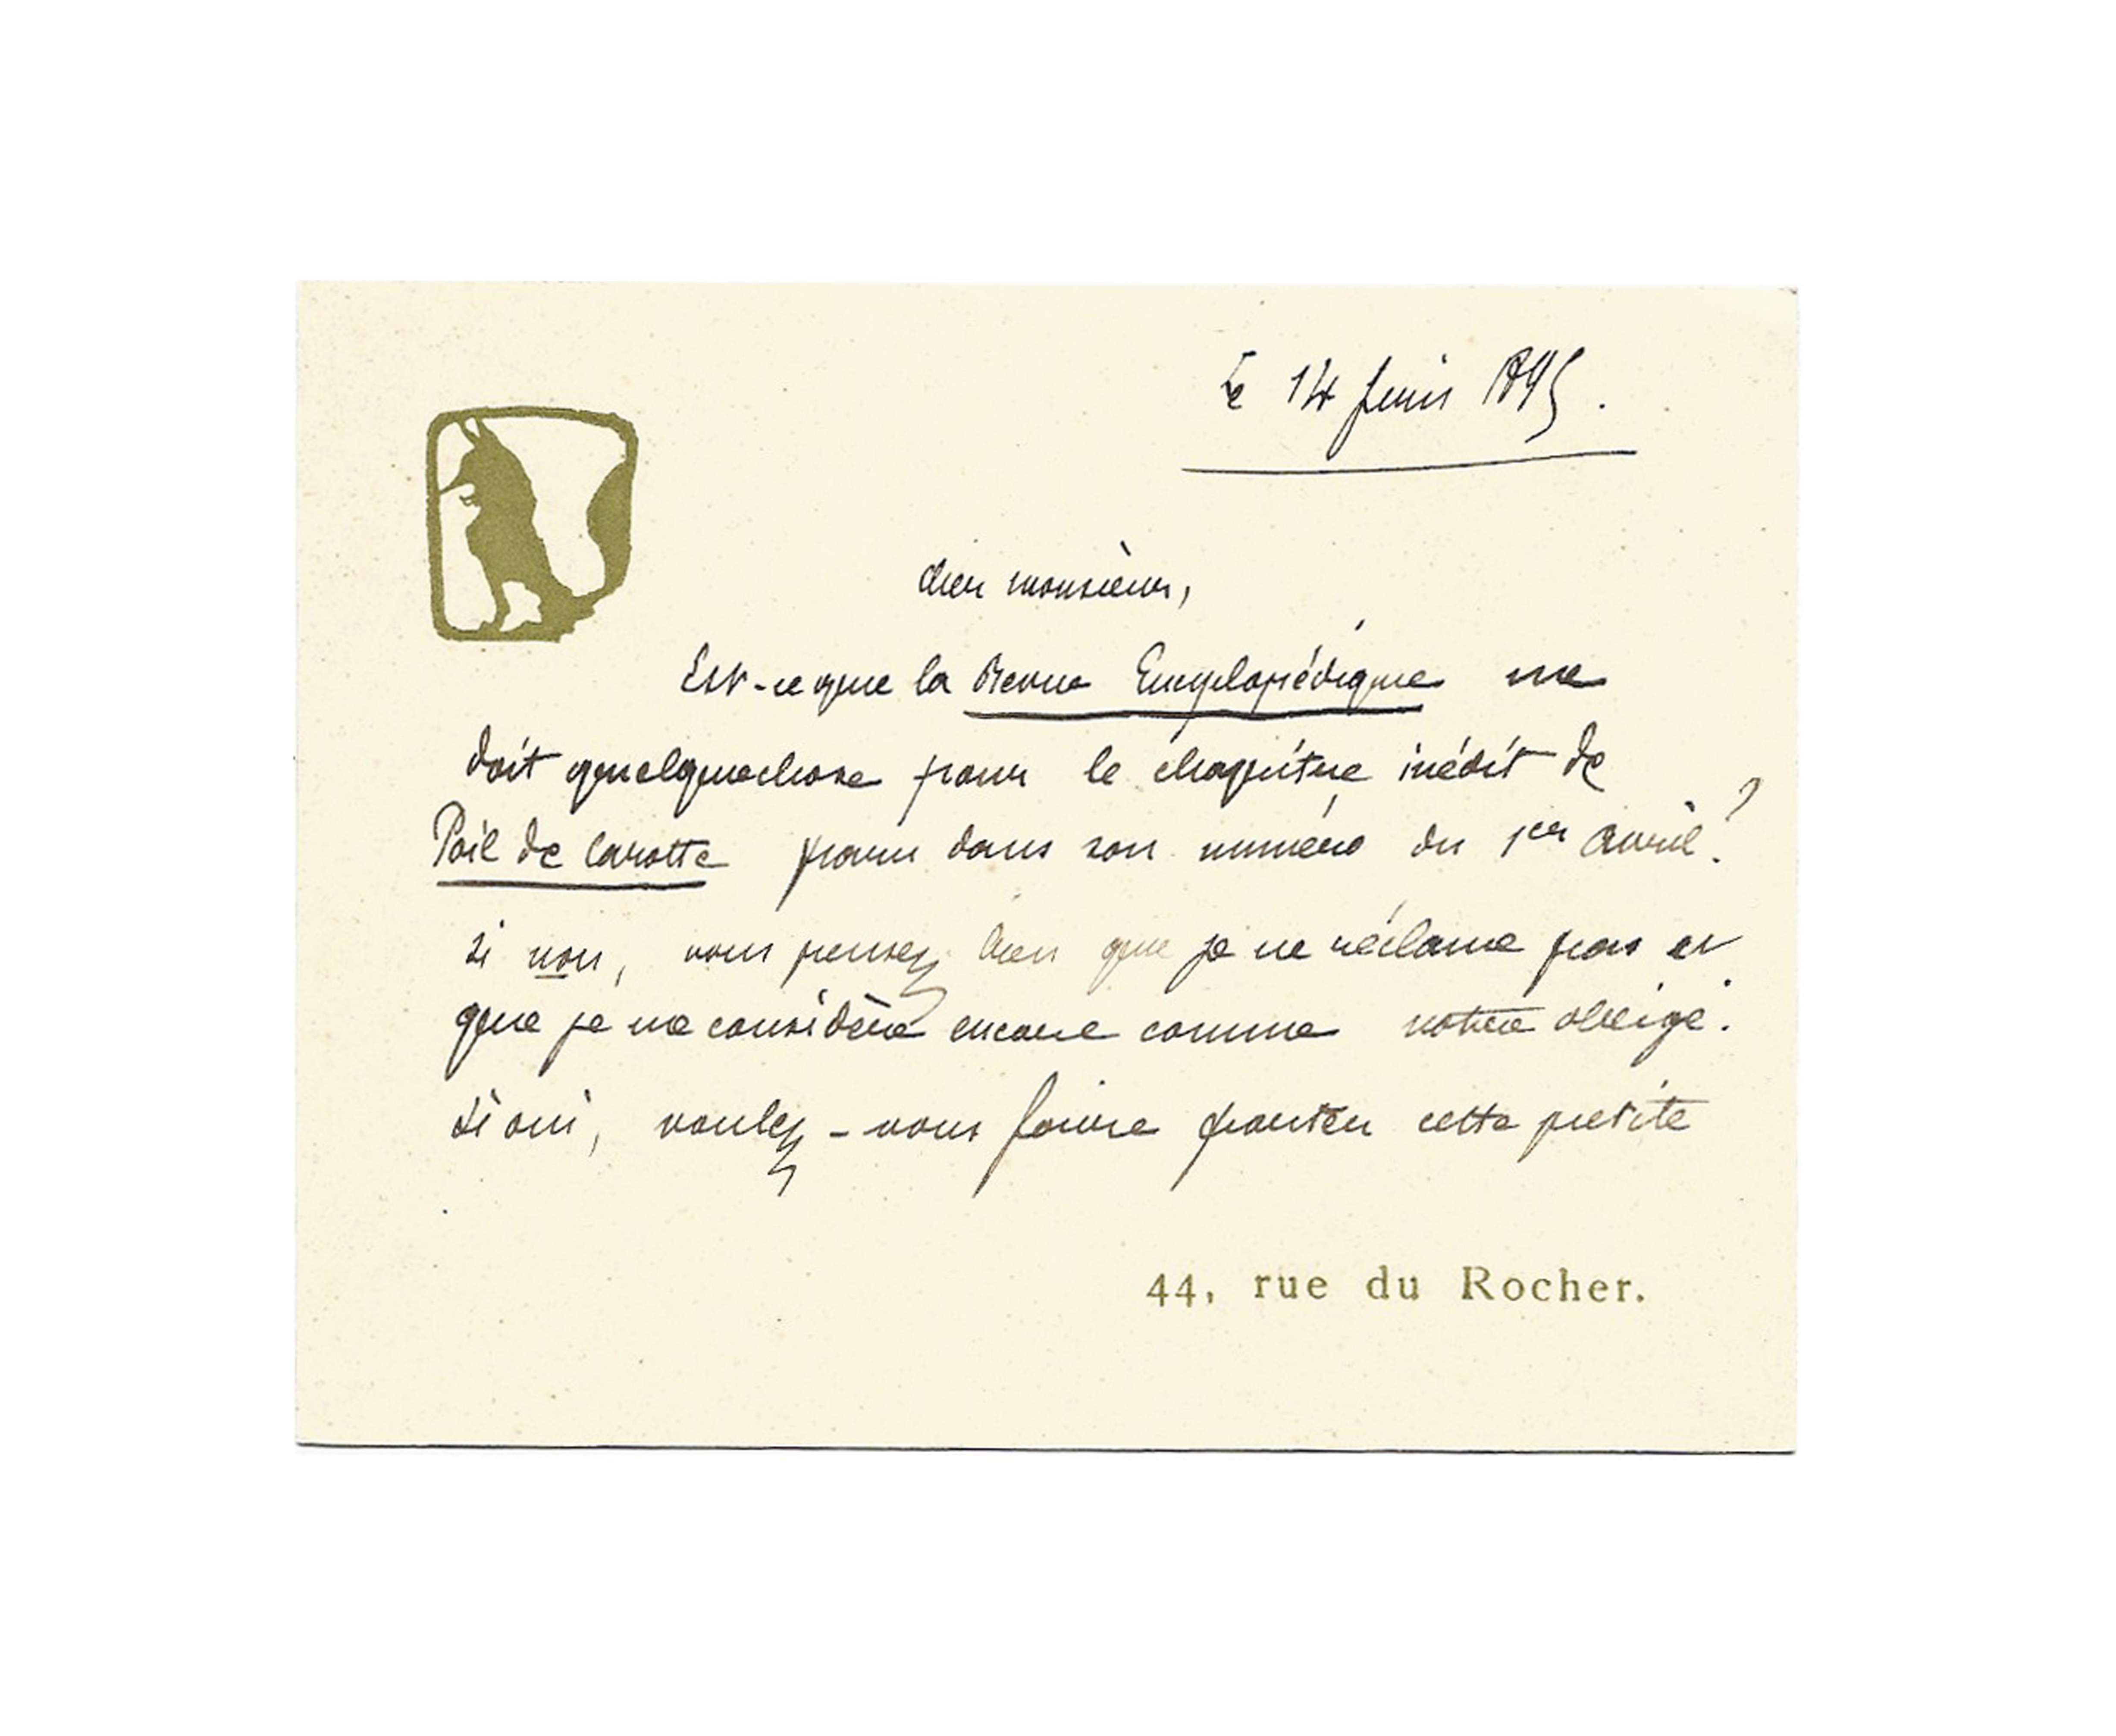 Le 14 juin 1895.
cher monsieur,
Est-ce que la Revue Encyclopédique me
doit quelquechose pour le chapitre inédit de
Poil de Carotte paru dans son numéro du 1er avril?
si non, vous pensez bien que je ne réclame pas et
que je me considère encore comme votre obligé.
si oui, voulez-vous faire porter cette petite
44, rue du Rocher.